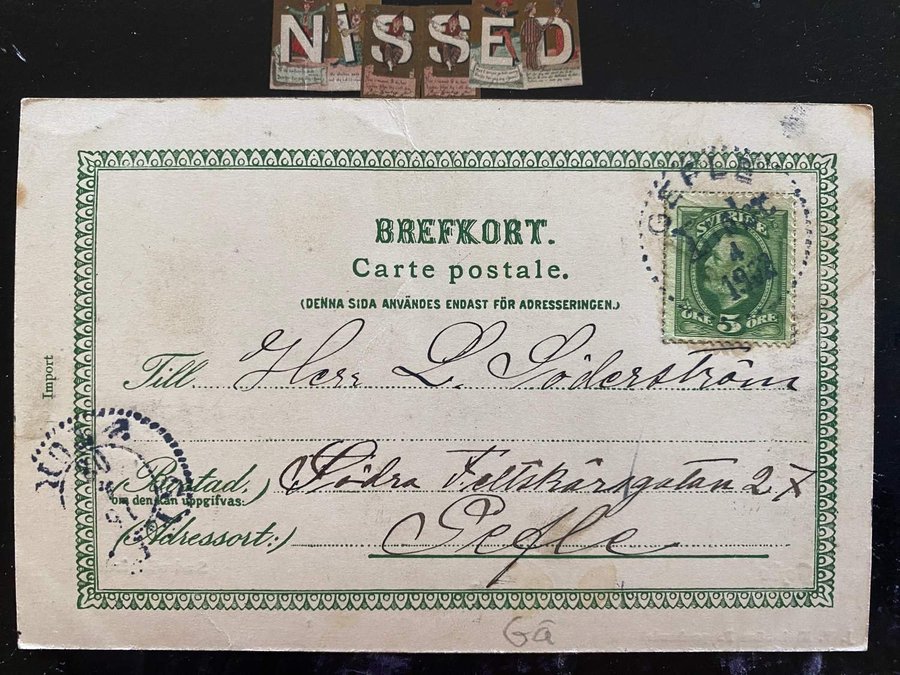 NiSSED
BREFKORT.
Carte postale.
(DENNA SIDA ANVÄNDES ENDAST FÖR ADRESSERINGEN.)
GEFLE
4
SVERIGE
5 ÖRE
Import
Till Herr L. Söderström
(Bostad, Södra Fältskärsgatan 27
om den kan uppgifvas.)
(Adressort:) Gefle
Gä